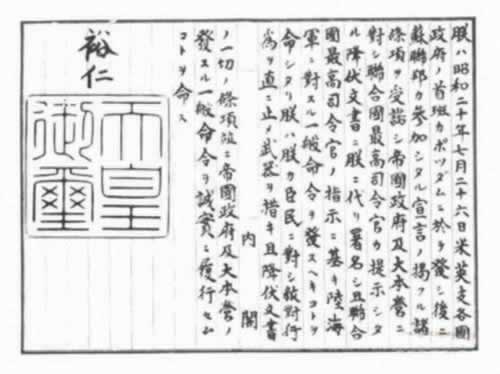 朕ハ昭和二十年七月二十六日米英支各國
政府ノ首班カポツダムニ於テ發シ後ニ
蘇聯邦カ參加シタル宣言ノ掲クル諸
條項ヲ受諾シ帝國政府及大本營ニ
對シ聯合國最高司令官カ提示シタ
ル降伏文書ニ朕ニ代リ署名シ且聯合
國最高司令官ノ指示ニ基キ陸海
軍ニ對スル一般命令ヲ發スヘキコトヲ
命シタリ朕ハ朕カ臣民ニ對シ敵對行
爲ヲ直ニ止メ武器ヲ措キ且降伏文書
ノ一切ノ條項竝ニ帝國政府及大本營ノ
發スル一般命令ヲ誠實ニ履行セム
コトヲ命ス
裕仁
天皇
御璽
内閣